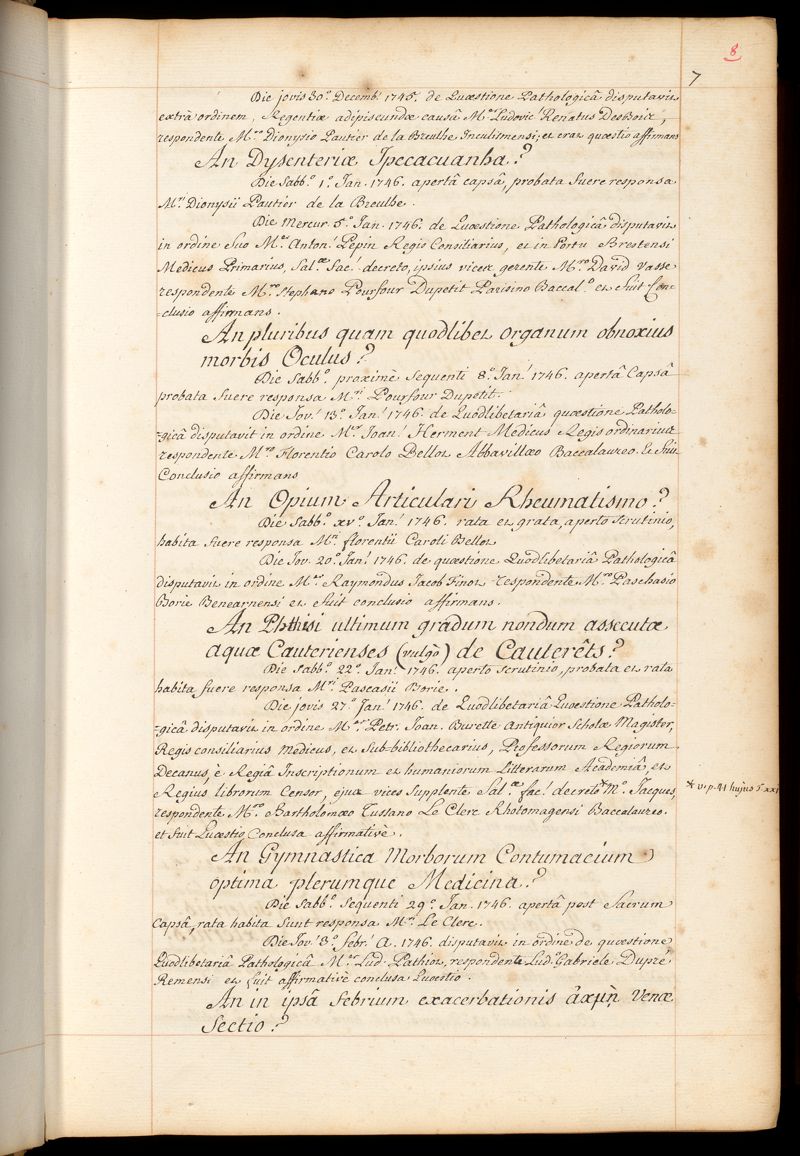 8
7
Die jovis 30.° Decemb.' 1745. de Quæstione Pathologicâ disputavit
extrà ordinem, Regentiæ adipiscundæ causâ M.er Ludovic.' Renatus
respondente M.ro Dionysio Pautier de la Breuthe Inculismensi; et erat quæstio affirmans
An Dysenteriæ Ipecacuanha?
Die Sabb.° 1.° Jan. 1746. apertâ capsâ, probata fuere responsa
M.ri Dionysii Pautier de la Breuthe.
Die Mercur. 5.° Jan. 1746. de Quæstione Pathologicâ disputavit
in ordine suo M.er Anton.' Pepin Regis Consiliarius, et in Portu Brestensi
Medicus Primarius, Sal.æ Fac.' decreto, ipsius vices gerente M.ro David Vasse
respondente M.ro Stephano Pourfour Dupetit Parisino Baccal.° et fuit Con-
-clusio affirmans.
An pluribus quam quodlibet organum obnoxius
morbis Oculus?
Die Sabb.° proximè sequenti 8.° Jan.' 1746. apertâ Capsâ
probata fuere responsa M.ri Pourfour Dupetit.
Die Jov.' 13.° Jan.' 1746. de Quodlibetariâ quæstione Patholo-
-gicâ disputavit in ordine M.er Joan.' Herment Medicus Regis ordinarius
respondente M.ro Florentio Carolo Bellot Abbavillæo Baccalaureo. Et fuit
Conclusio affirmans
An Opium Articulari Rheumatismo?
Die Sabb.° xv.° Jan.' 1746. rata et grata, aperto scrutinio,
habita fuere responsa M.ri florentii Caroli Bellot
Die Jov. 20.° Jan.' 1746. de quæstione Quodlibetariâ Pathologicâ
disputavit in ordine M.er Raymondus Jacob Finot respondente M.ro Paschasio
Borie Benearnensi et fuit conclusio affirmans.
An Phthisi ultimum gradum nondum assecutæ
aquæ Cauterienses (vulgò) de Cauterêts?
Die Sabb.° 22.° Jan.' 1746. aperto scrutinio, probata et rata
habita fuere responsa M.ri Pascasii Borie.
Die jovis 27.° Jan.' 1746. de Quodlibetariâ Quæstione Patholo-
-gicâ disputavit in ordine M.er Petr. Joan. Burette Antiquior Scholæ Magister,
Regis consiliarius medicus, et Sub-bibliothecarius, Professorum Regiorum
Decanus, è Regiâ Inscriptionum et humaniorum Litterarum Academiâ, et
Regius librorum Censor, ejus vices supplente Sal.æ fac.' decreto * M.° Jacques,
* v. p. 41 hujus
respondente M.ro Bartholomæo Tussano Le Clerc Rhotomagensi Baccalaureo.
et fuit Quæstio Conclusa affirmativè.
An Gymnastica Morborum Contumacium
optima plerumque Medicina?
Die Sabb.° sequenti 29.° Jan. 1746. apertâ post Sacrum
Capsâ, rata habita sunt responsa M.ri Le Clerc.
Die Jov.' 3.° febr.' A. 1746. disputavit in ordine de quæstione
Quodlibetariâ Pathologicâ M.er Lud. Pathiot, respondente Lud.° Gabriele Dupré
Remensi et fuit affirmativè conclusa Quæstio.
An in ipsâ febrium exacerbationis ἀκμῇ Venæ
Sectio?